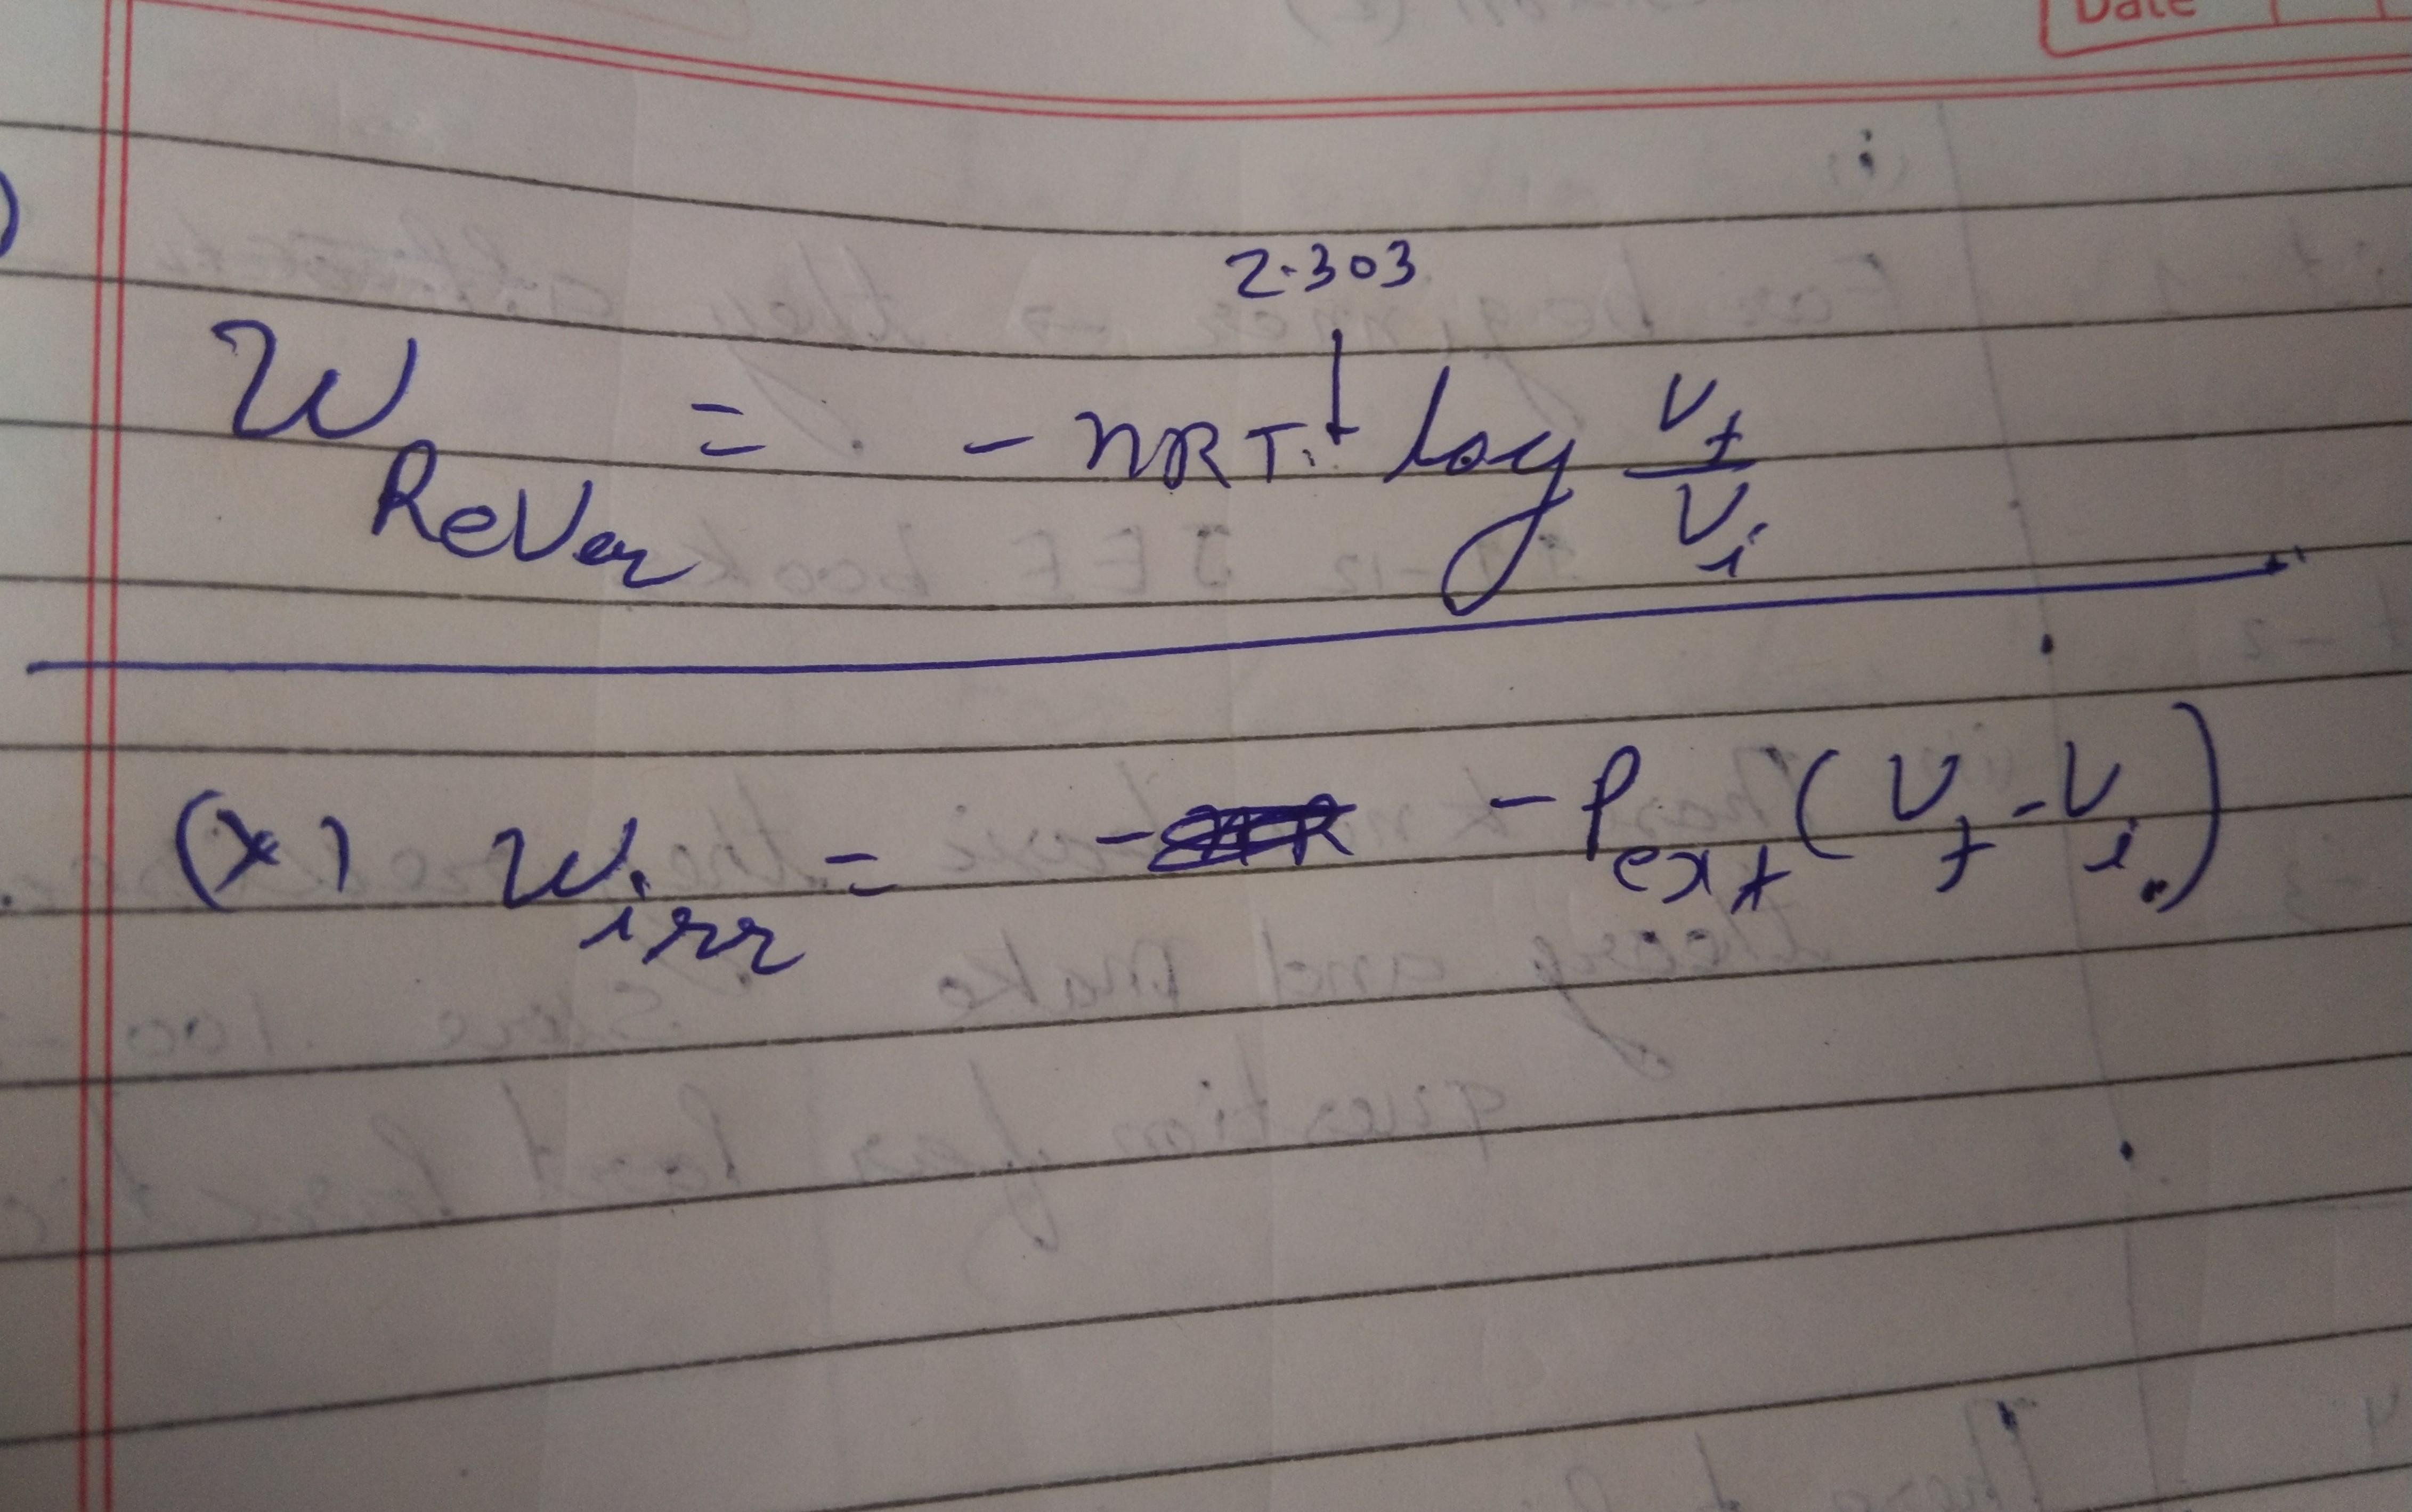 Date
2.303
W Rever = - nRT log Vf/Vi
(x) Wirr = - - Pext (Vf - Vi)